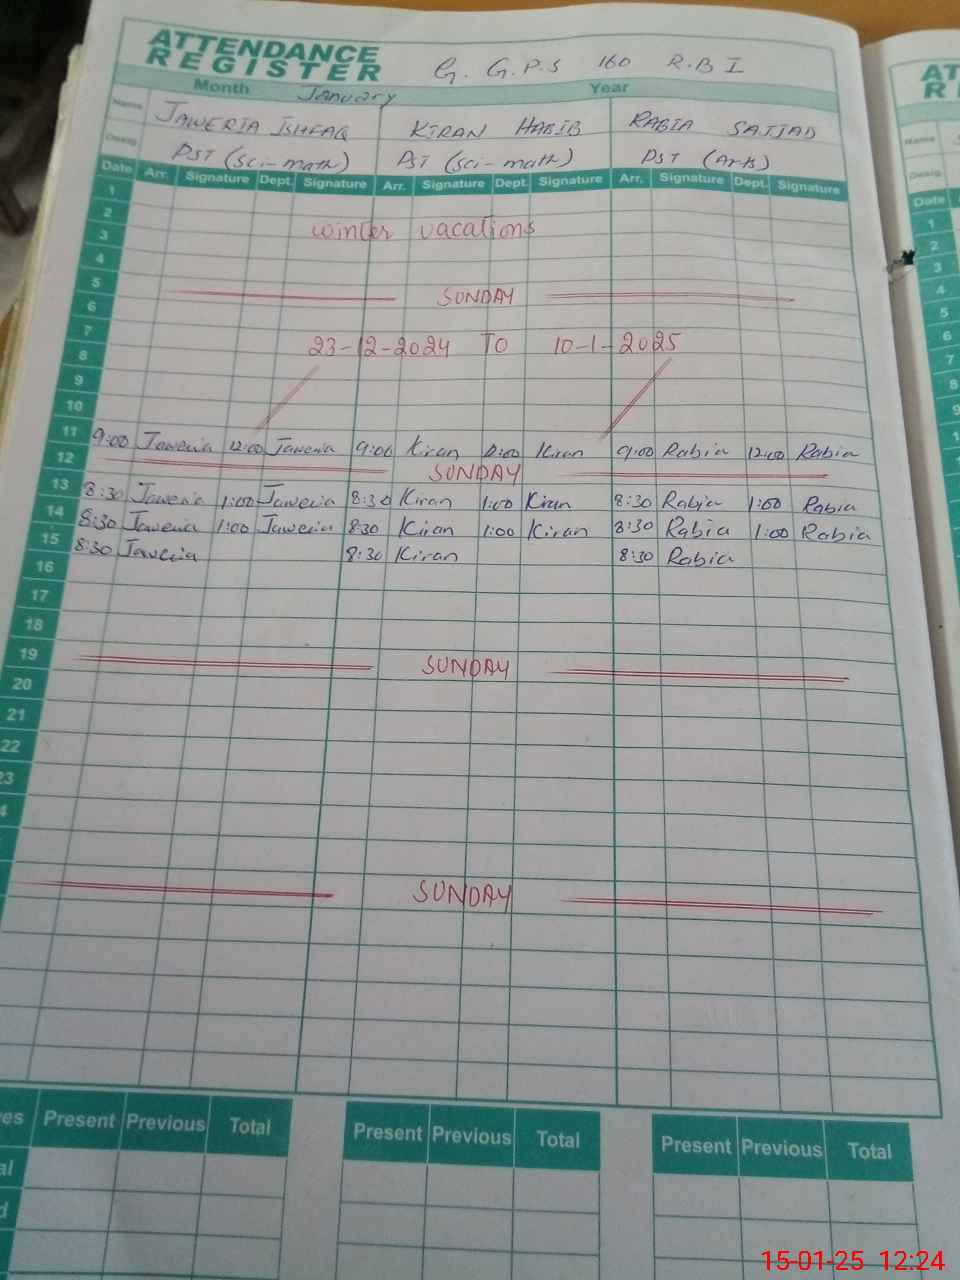 ATTENDANCE
REGISTER
G. G.P.S 160 R.B I
Month January Year
Name JAWERIA ISHFAQ KIRAN HABIB RABIA SAJJAD
Desig. PST (sci-math) PST (sci-math) PST (Arts)
Date Arr. Signature Dept. Signature Arr. Signature Dept. Signature Arr. Signature Dept. Signature
1
2
3 winter vacations
4
5 SUNDAY
6
7
8 23-12-2024 TO 10-1-2025
9
10
11 9:00 Jaweria 12:00 Jaweria 9:00 Kiran 12:00 Kiran 9:00 Rabia 12:00 Rabia
12 SUNDAY
13 8:30 Jaweria 1:00 Jaweria 8:30 Kiran 1:00 Kiran 8:30 Rabia 1:00 Rabia
14 8:30 Jaweria 1:00 Jaweria 8:30 Kiran 1:00 Kiran 8:30 Rabia 1:00 Rabia
15 8:30 Jaweria 8:30 Kiran 8:30 Rabia
16
17
18
19 SUNDAY
20
21
22
23
4
SUNDAY
Present Previous Total Present Previous Total Present Previous Total
AT
R
Name
Desig.
Date
1
2
3
4
5
6
7
8
9
10
15-01-25 12:24